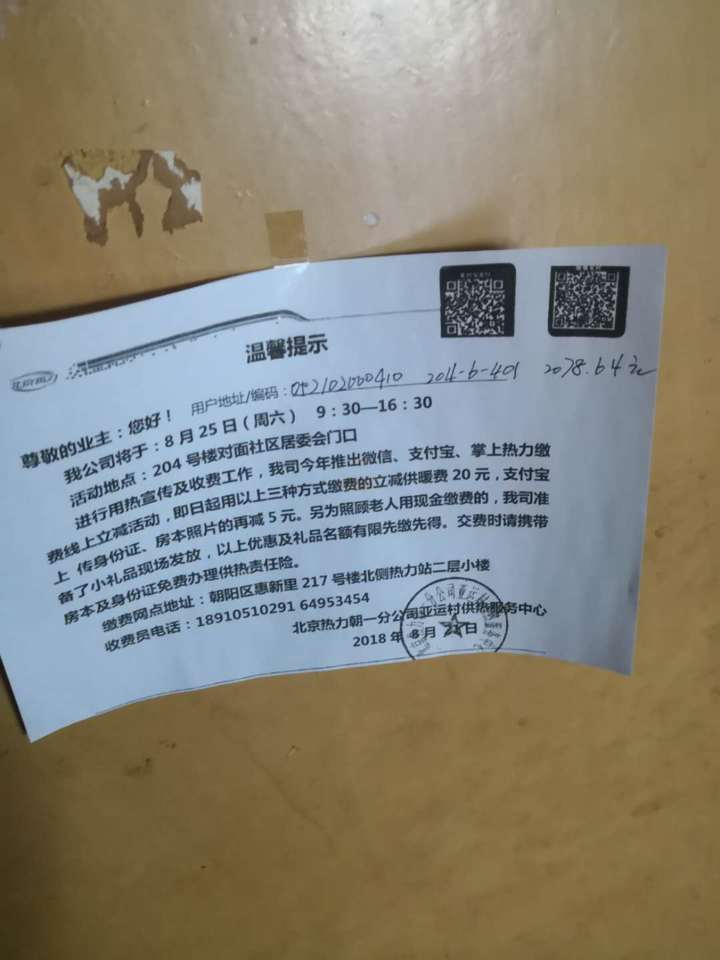 温馨提示
用户地址/编码：052102000410 204-6-401 2078.64元
尊敬的业主：您好！
我公司将于：8月25日（周六） 9：30—16：30
活动地点：204号楼对面社区居委会门口
进行用热宣传及收费工作，我司今年推出微信、支付宝、掌上热力缴
费线上立减活动，即日起用以上三种方式缴费的立减供暖费20元，支付宝
上 传身份证、房本照片的再减5元。另为照顾老人用现金缴费的，我司准
备了小礼品现场发放，以上优惠及礼品名额有限先缴先得。交费时请携带
房本及身份证免费办理供热责任险。
缴费网点地址：朝阳区惠新里217号楼北侧热力站二层小楼
收费员电话：18910510291 64953454
北京热力朝一分公司亚运村供热服务中心
2018年8月 日